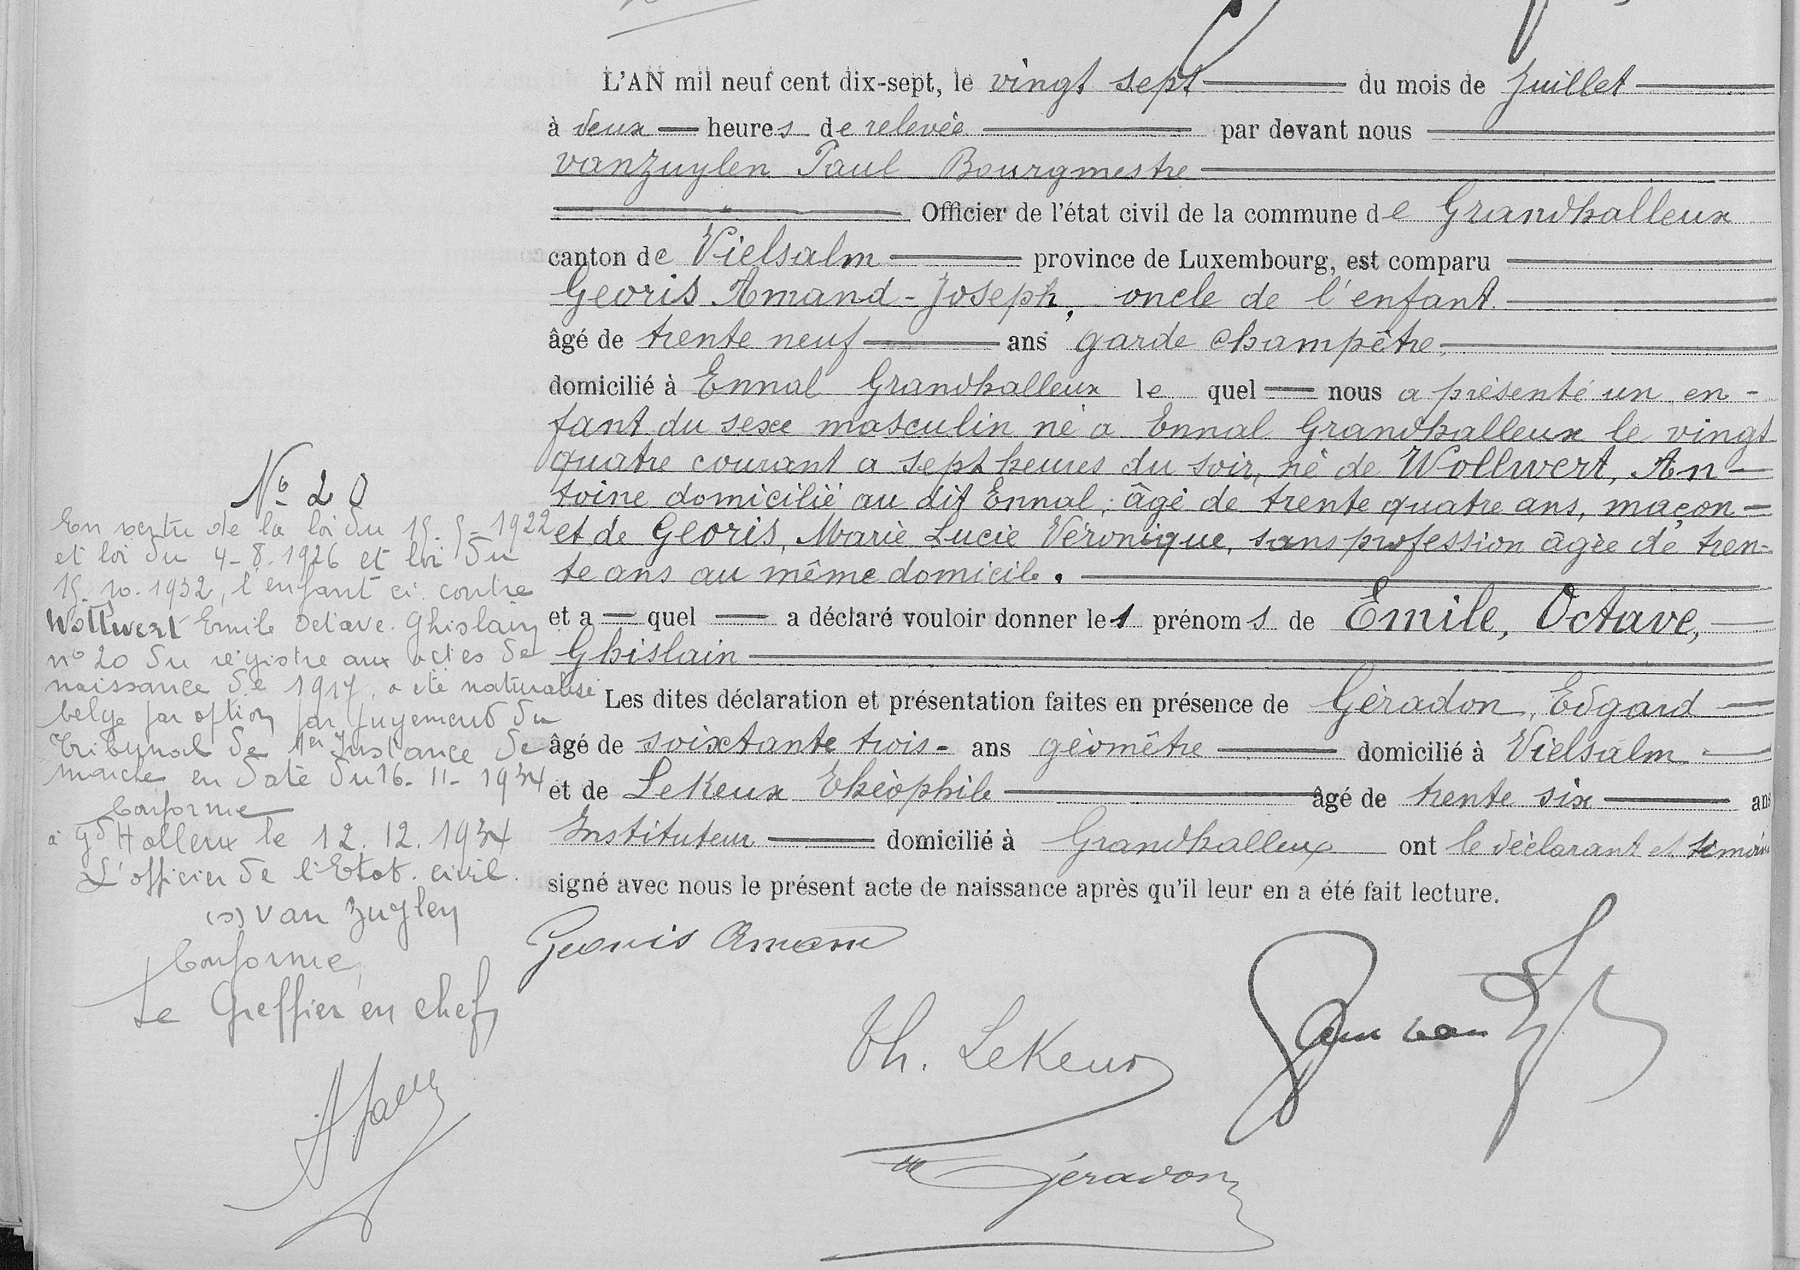 L'AN mil neuf cent dix-sept, le vingt sept du mois de Juillet
à deux heures de relevée par devant nous
vanzuylen Paul Bourgmestre
Officier de l'état civil de la commune de Grandhalleux
canton de Vielsalm province de Luxembourg, est comparu
Georis Amand-Joseph, oncle de l'enfant
âgé de trente neuf ans garde champêtre
domicilié à Ennal Grandhalleux le quel nous a présenté un en-
fant du sexe masculin né a Ennal Grandhalleux le vingt
quatre courant a sept heures du soir, né de Wollwert, An-
toine domicilié au dit Ennal, âgé de trente quatre ans, maçon
et de Georis, Marie Lucie Véronique, sans profession âgée de tren-
te ans au même domicile.
et a quel a déclaré vouloir donner les prénoms de Émile, Octave,
Ghislain
Les dites déclaration et présentation faites en présence de Géradon, Edgard
âgé de soixtante trois ans géomêtre domicilié à Vielsalm
et de LeKeux Théophile âgé de trente six ans
Instituteur domicilié à Grandhalleux ont le déclarant et témoins
signé avec nous le présent acte de naissance après qu'il leur en a été fait lecture.
Georis Amand
Th. LeKeux
Géradon
No 20
En vertu de la loi du 15.5-1922
et loi du 4-8.1926 et loi du
15.10.1932, l'enfant ci contre
Wollwert Emile Octave Ghislain
no 20 du régistre aux actes de
naissance de 1917, a été naturalisé
belge par option par jugement du
Tribunal de 1er Instance de
Marche en date du 16-11-1934
Conforme
à Gd Halleux le 12.12.1934
L'officier de l'Etat civil.
(s) Van Zuylen
Conforme,
Le Greffier en chef